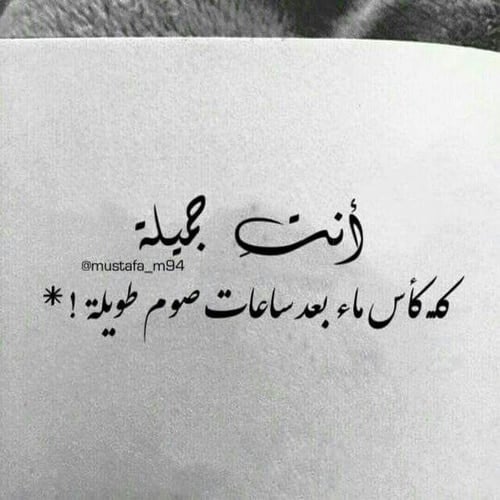 أنتِ جميلة
@mustafa_m94
ككأس ماء بعد ساعات صوم طويلة ! *